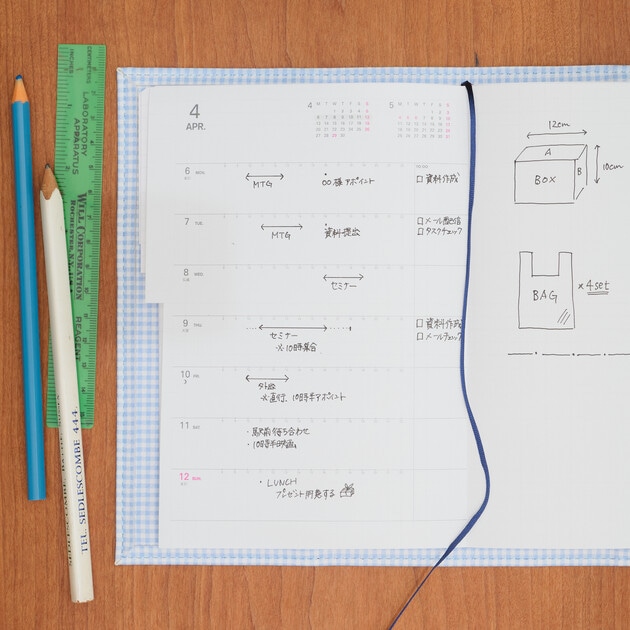 4
APR.
4
5
6 MON
MTG
○○様アポイント
□ 資料作成
7 TUE
MTG
資料提出
□ メール配信
□ タスクチェック
8 WED
セミナー
9 THU
セミナー
※10時集合
□ 資料作成
□ メールチェック
10 FRI
外出
※直行、10時半アポイント
11 SAT
・駅前待ち合わせ
・10時半映画
12 SUN
・LUNCH
プレゼント用意する
12cm
A
B
BOX
10cm
BAG
× 4set
INCHES
CENTIMETERS
LABORATORY
APPARATUS
WILL CORPORATION
ROCHESTER, N.Y.
REAGENT
TEL. SEDLESCOMBE 444.